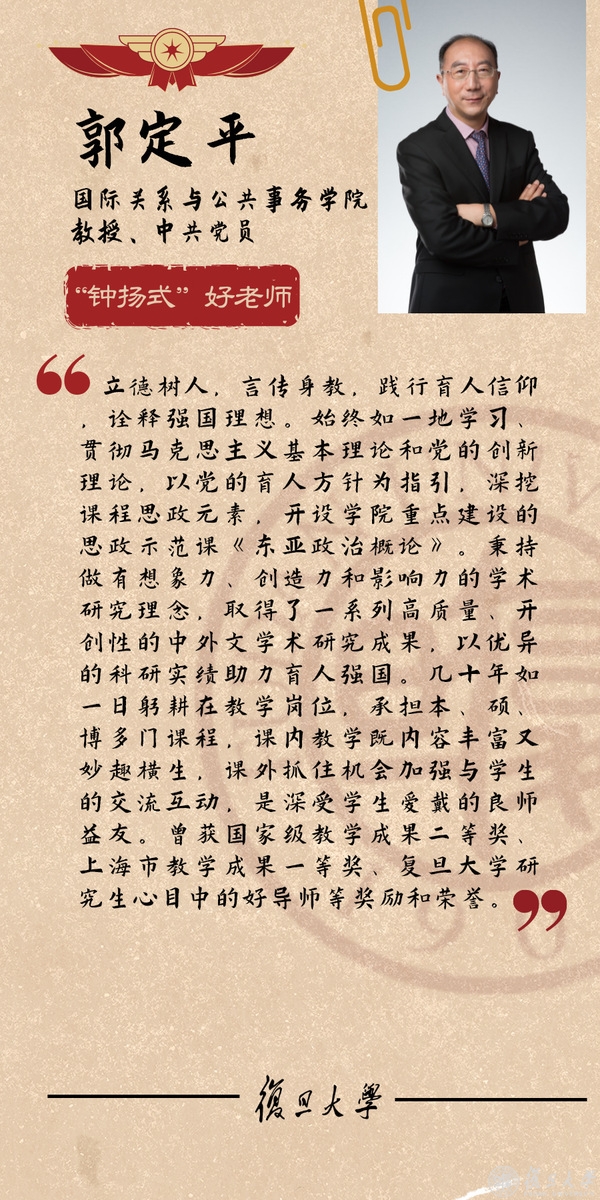 郭定平
国际关系与公共事务学院
教授、中共党员
“钟扬式”好老师
“
立德树人，言传身教，践行育人信仰
，诠释强国理想。始终如一地学习、
贯彻马克思主义基本理论和党的创新
理论，以党的育人方针为指引，深挖
课程思政元素，开设学院重点建设的
思政示范课《东亚政治概论》。秉持
做有想象力、创造力和影响力的学术
研究理念，取得了一系列高质量、开
创性的中外文学术研究成果，以优异
的科研实绩助力育人强国。几十年如
一日躬耕在教学岗位，承担本、硕、
博多门课程，课内教学既内容丰富又
妙趣横生，课外抓住机会加强与学生
的交流互动，是深受学生爱戴的良师
益友。曾获国家级教学成果二等奖、
上海市教学成果一等奖、复旦大学研
究生心目中的好导师等奖励和荣誉。
”
復旦大學
復旦大學